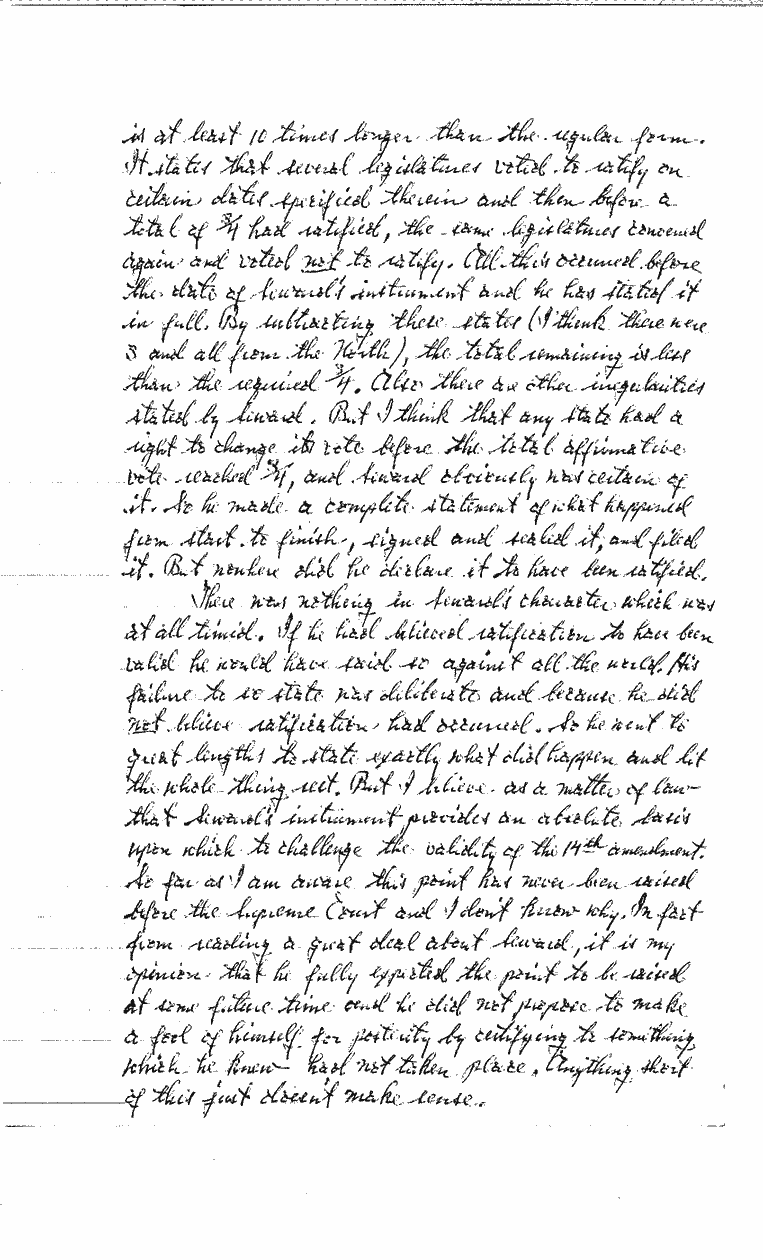 is at least 10 times longer than the regular form.
It states that several legislatures voted to ratify on
certain dates specified therein and then before a
total of 3/4 had ratified, the same legislatures convened
again and voted not to ratify. All this occurred before
the date of Seward's instrument and he has stated it
in full. By subtracting these states (I think there were
3 and all from the North), the total remaining is less
than the required 3/4. Also there are other irregularities
stated by Seward. But I think that any state had a
right to change its vote before the total affirmative
vote reached 3/4, and Seward obviously was certain of
it. So he made a complete statement of what happened
from start to finish, signed and sealed it, and filed
it. But nowhere did he declare it to have been ratified.
There was nothing in Seward's character which was
at all timid. If he had believed ratification to have been
valid he would have said so against all the world. His
failure to so state was deliberate and because he did
not believe ratification had occurred. So he went to
great lengths to state exactly what did happen and let
the whole thing rest. But I believe as a matter of law
that Seward's instrument provides an absolute basis
upon which to challenge the validity of the 14th amendment.
So far as I am aware this point has never been raised
before the Supreme Court and I don't know why. In fact
from reading a great deal about Seward, it is my
opinion that he fully expected the point to be raised
at some future time and he did not propose to make
a fool of himself for posterity by certifying to something
which he knew had not taken place. Anything short
of this just doesn't make sense.